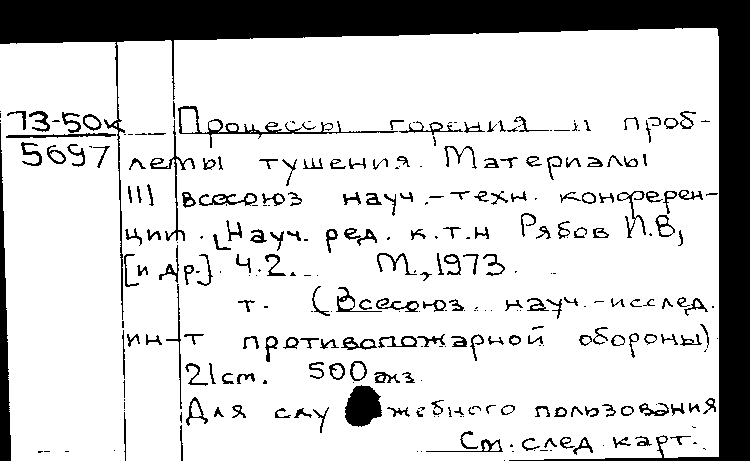 73-50к Процессы горения и проб-
5697 лемы тушения. Материалы
III всесоюз науч.-техн. конферен-
ции. [Науч. ред. к.т.н Рябов И.В,
[и др.]. Ч.2. М., 1973.
т. (Всесоюз. науч.-исслед.
ин-т противопожарной обороны)
21 см. 500 экз.
Для служебного пользования
См. след. карт.